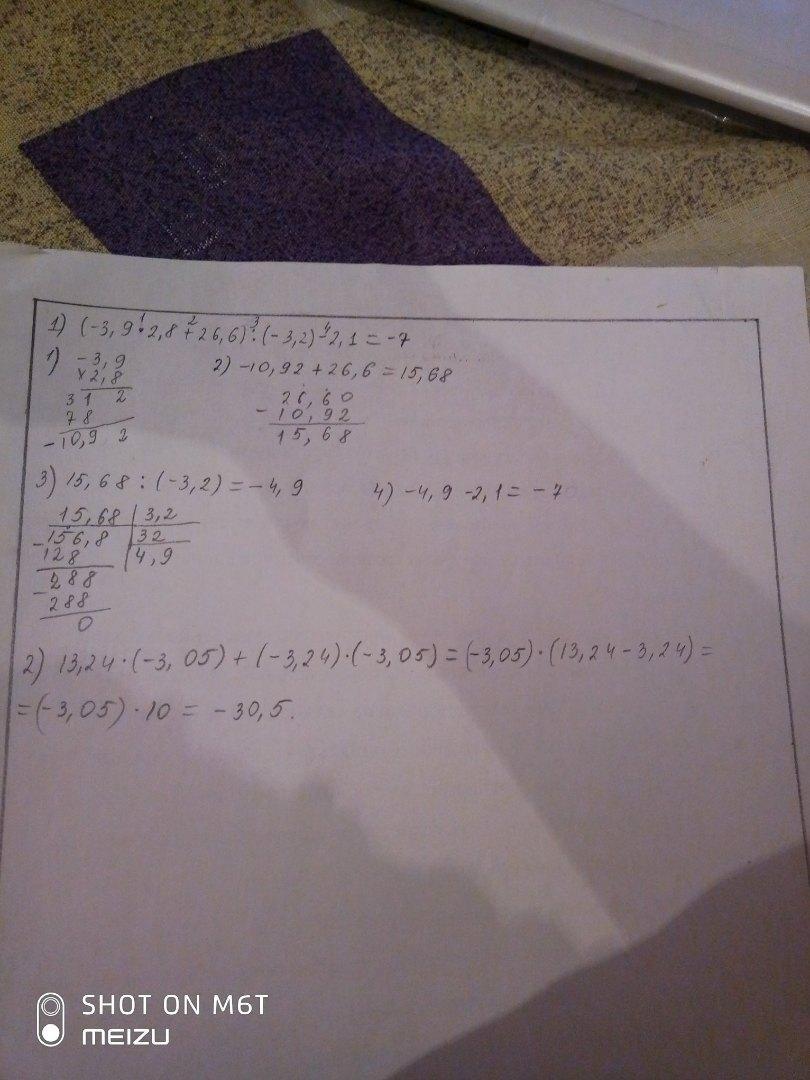 1) (-3,9 · 2,8 + 26,6) : (-3,2) - 2,1 = -7
1 2 3 4
1) -3,9 2) -10,92 + 26,6 = 15,68
× 2,8
31 2 26,60
78 - 10,92
-10,9 2 15,68
3) 15,68 : (-3,2) = -4,9 4) -4,9 - 2,1 = -7
15,68 | 3,2
- 156,8 | 32
128 | 4,9
- 288
288
0
2) 13,24 · (-3,05) + (-3,24) · (-3,05) = (-3,05) · (13,24 - 3,24) =
= (-3,05) · 10 = -30,5.
SHOT ON M6T
MEIZU